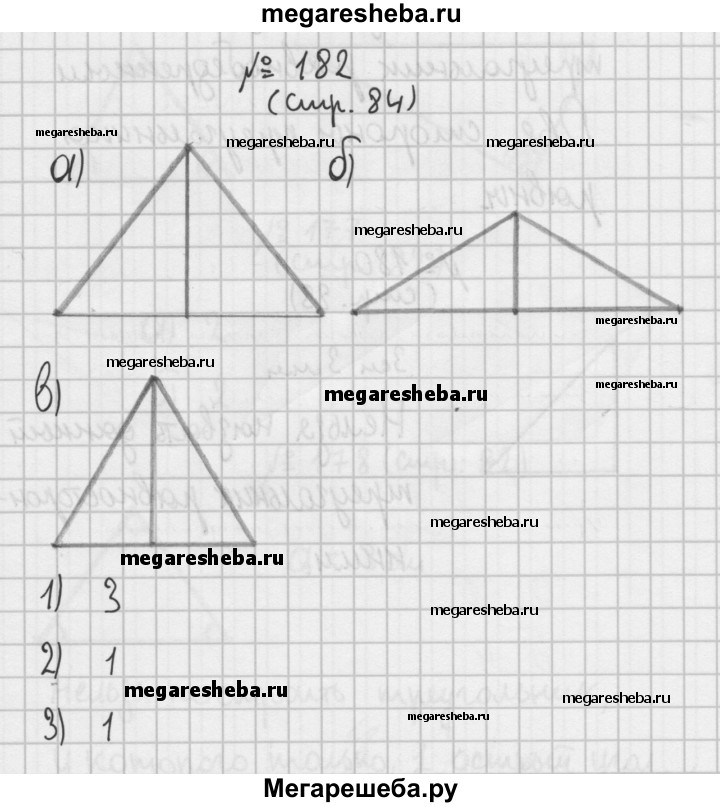 megaresheba.ru
№ 182
(стр. 84)
megaresheba.ru
megaresheba.ru
megaresheba.ru
а)
б)
megaresheba.ru
megaresheba.ru
megaresheba.ru
в)
megaresheba.ru
megaresheba.ru
megaresheba.ru
megaresheba.ru
1) 3
megaresheba.ru
2) 1
megaresheba.ru
megaresheba.ru
3) 1
megaresheba.ru
Мегарешеба.ру